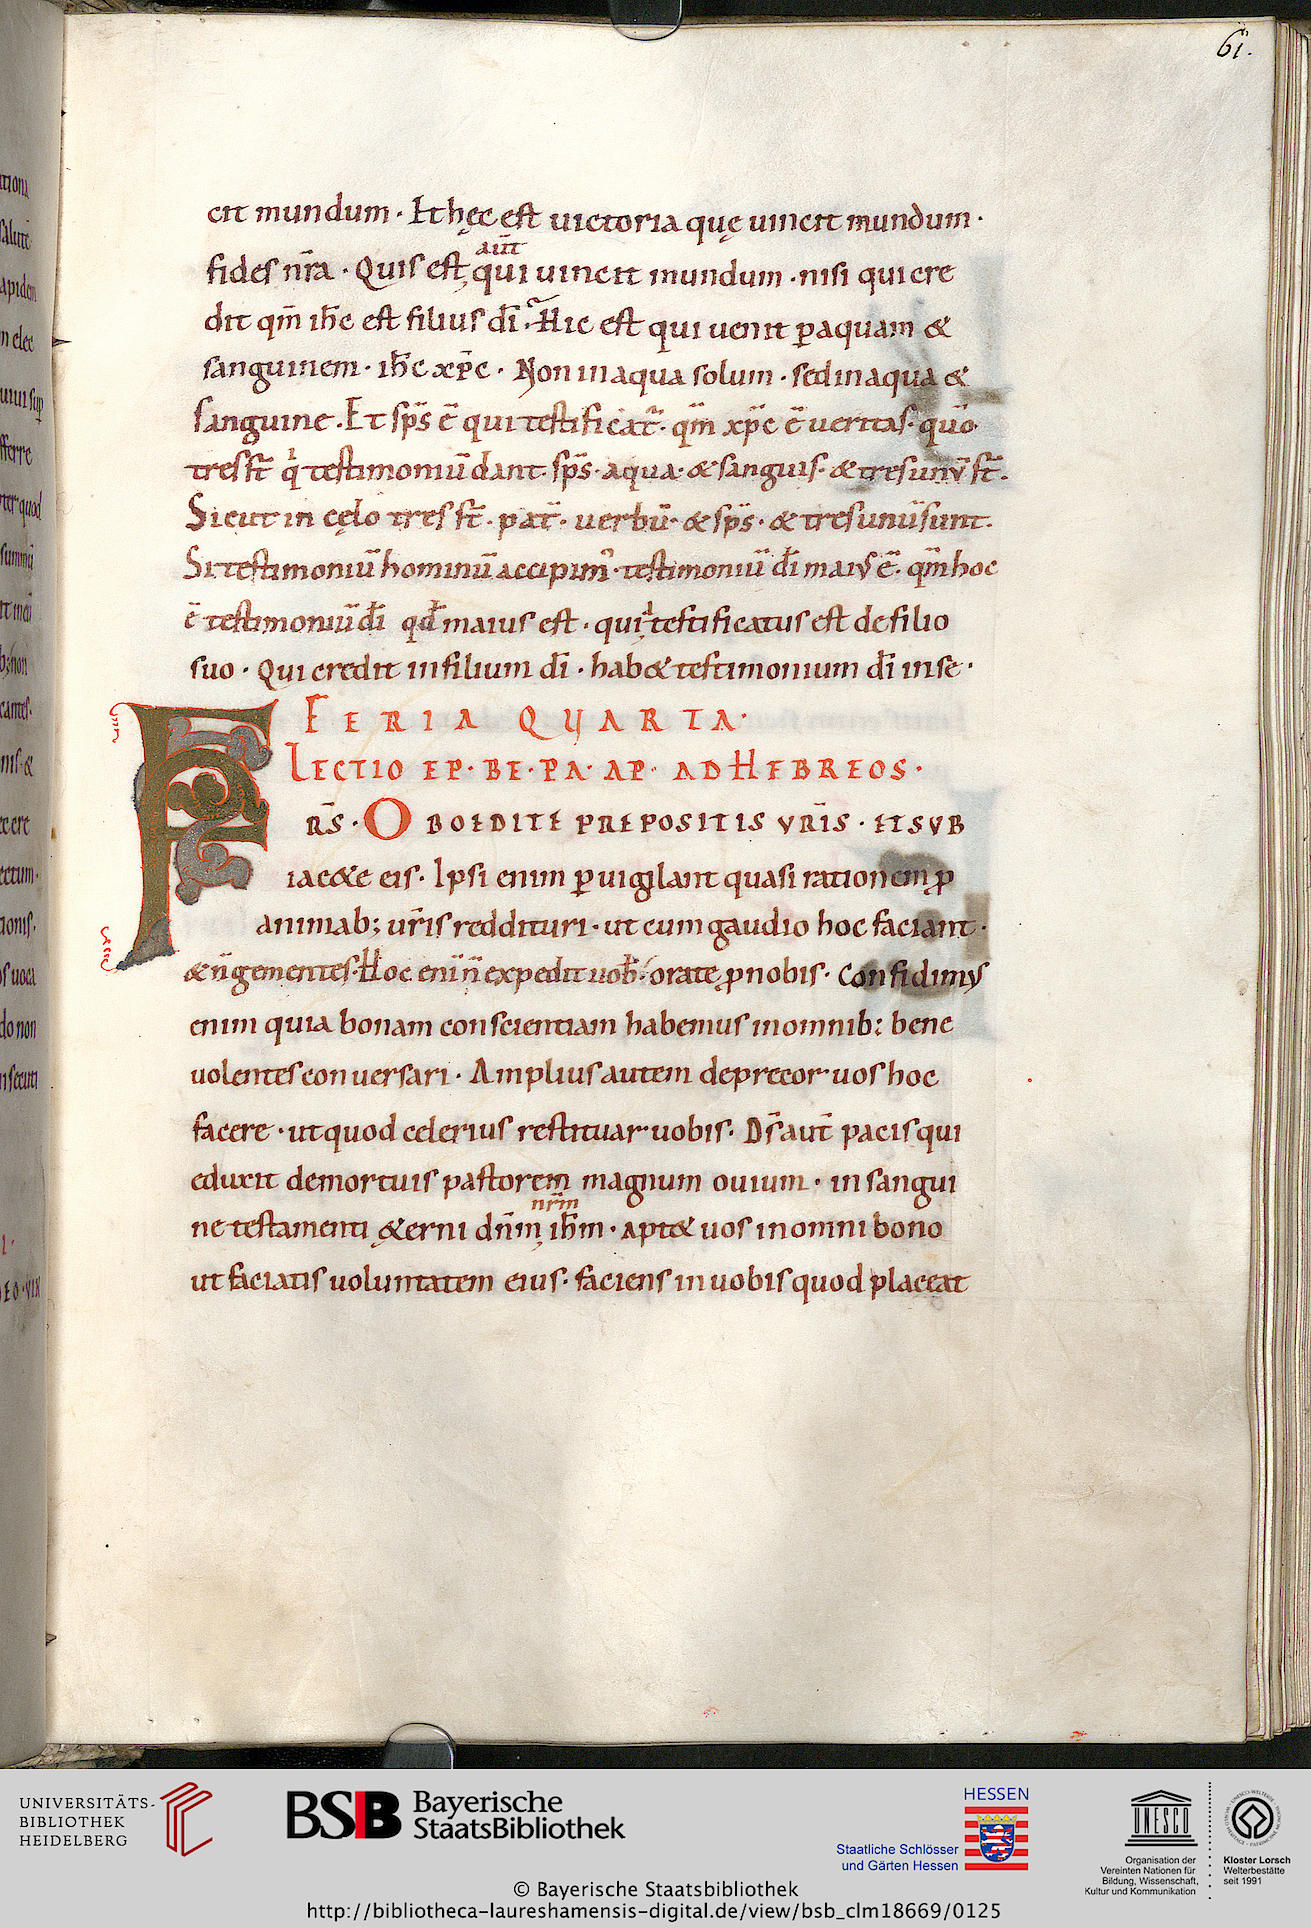 61.
cit mundum · Et hęc est uictoria quę uincit mundum ·
aut̄
fides nr̄a · Quis est qui uincit mundum · nisi qui cre
dit qm̄ ih̄c est filius dī · Hic est qui uenit ꝑ aquam &
sanguinem · ih̄c xp̄c · Non in aqua solum · sed in aqua &
sanguine · Et sp̄s ē qui testificat̄ · qm̄ xp̄c ē ueritas · qūo
tres st̄ q̇ testimoniū dant · sp̄s · aqua · & sanguis · & tres unū st̄ ·
Sicut in cęlo tres st̄ · pat̄ · uerbū · & sp̄s · & tres unū sunt ·
Si testimoniū hominū accipim᾽ · testimoniū dī maius ē · qm̄ hoc
ē testimoniū dī qđ maius est · qui testificatus est de filio
suo · Qui credit in filium dī · hab& testimonium dī in se ·
FERIA QUARTA ·
LECTIO EP · BE · PA · AP · AD HEBREOS ·
FRS̄ · OBOEDITE PREPOSITIS VRĪS · ET SVB
iac&e eis · Ipsi enim ꝑuigilant quasi rationem ꝓ
animab; ur̄is reddituri · ut cum gaudio hoc faciant ·
& n̄ gementes · Hoc eni n̄ expedit uob̄ · orate ꝓ nobis · Confidimus
enim quia bonam conscientiam habemus in omnib; bene
uolentes conuersari · Amplius autem deprecor uos hoc
facere · ut quod celerius restituar uobis · Ds̄ aut̄ pacis qui
eduxit de mortuis pastorem magnum ouium · in sangui
nr̄m
ne testamenti &erni dn̄m ih̄m · apt& uos in omni bono
ut faciatis uoluntatem eius · faciens in uobis quod placeat
UNIVERSITÄTS-
BIBLIOTHEK
HEIDELBERG
BSB Bayerische
StaatsBibliothek
HESSEN
Staatliche Schlösser
und Gärten Hessen
UNESCO
Organisation der
Vereinten Nationen für
Bildung, Wissenschaft,
Kultur und Kommunikation
Kloster Lorsch
Welterbestätte
seit 1991
© Bayerische Staatsbibliothek
http://bibliotheca-laureshamensis-digital.de/view/bsb_clm18669/0125